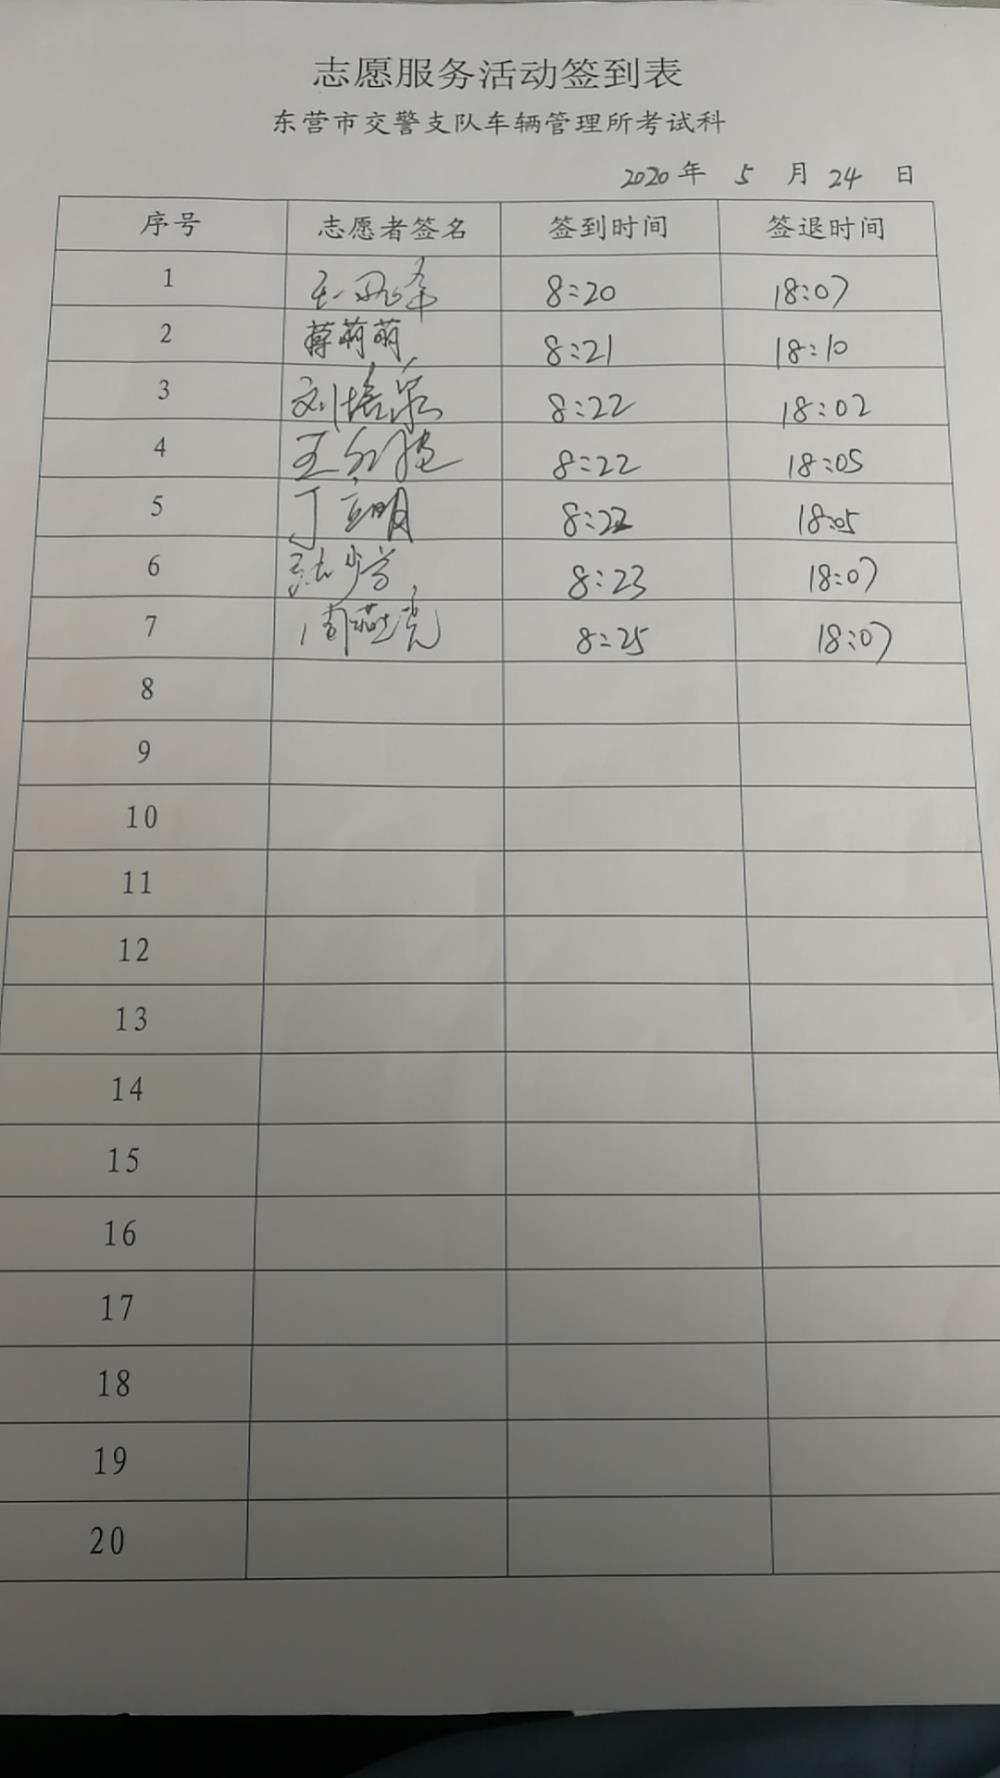 志愿服务活动签到表
东营市交警支队车辆管理所考试科
2020年 5 月 24 日
序号 志愿者签名 签到时间 签退时间
1 8:20 18:07
2 薛萌萌 8:21 18:10
3 刘培 8:22 18:02
4 王 8:22 18:05
5 丁立明 8:22 18:05
6 8:23 18:07
7 周燕亮 8:25 18:07
8
9
10
11
12
13
14
15
16
17
18
19
20